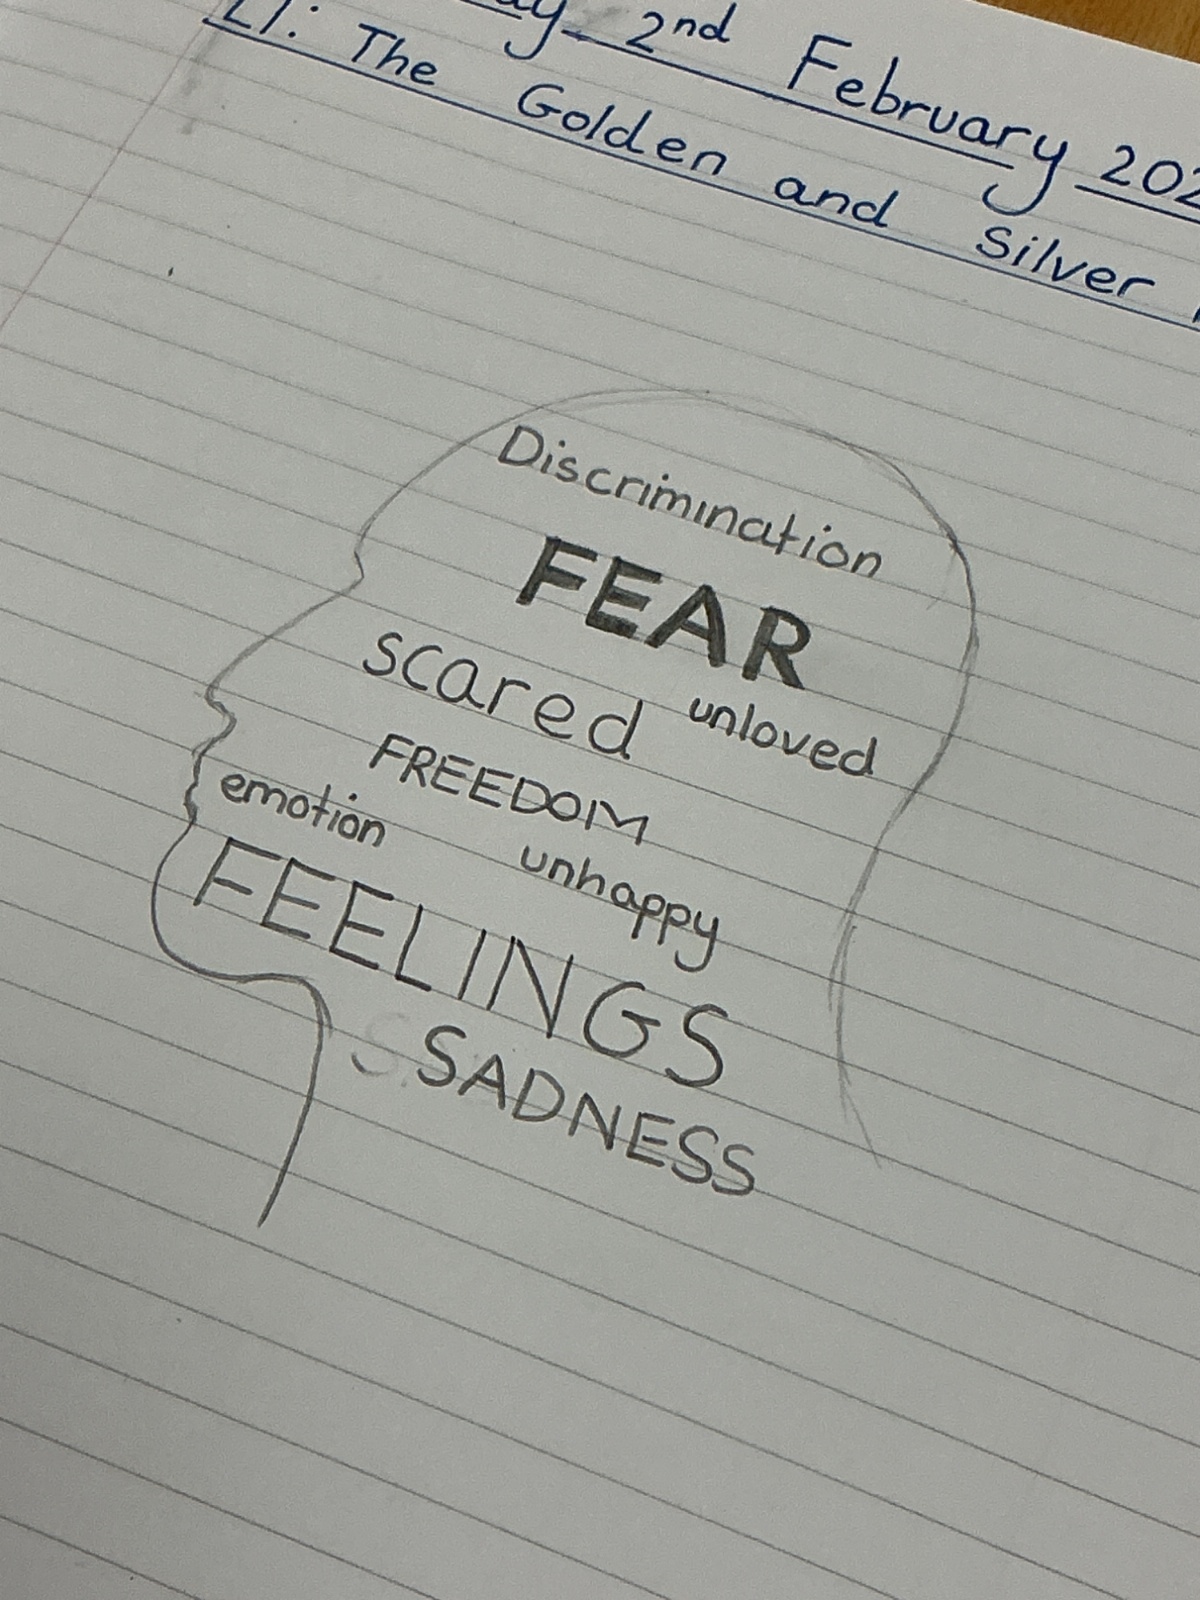 2nd February 202
LI: The Golden and Silver
Discrimination
FEAR
scared unloved
FREEDOM
emotion unhappy
FEELINGS
SADNESS